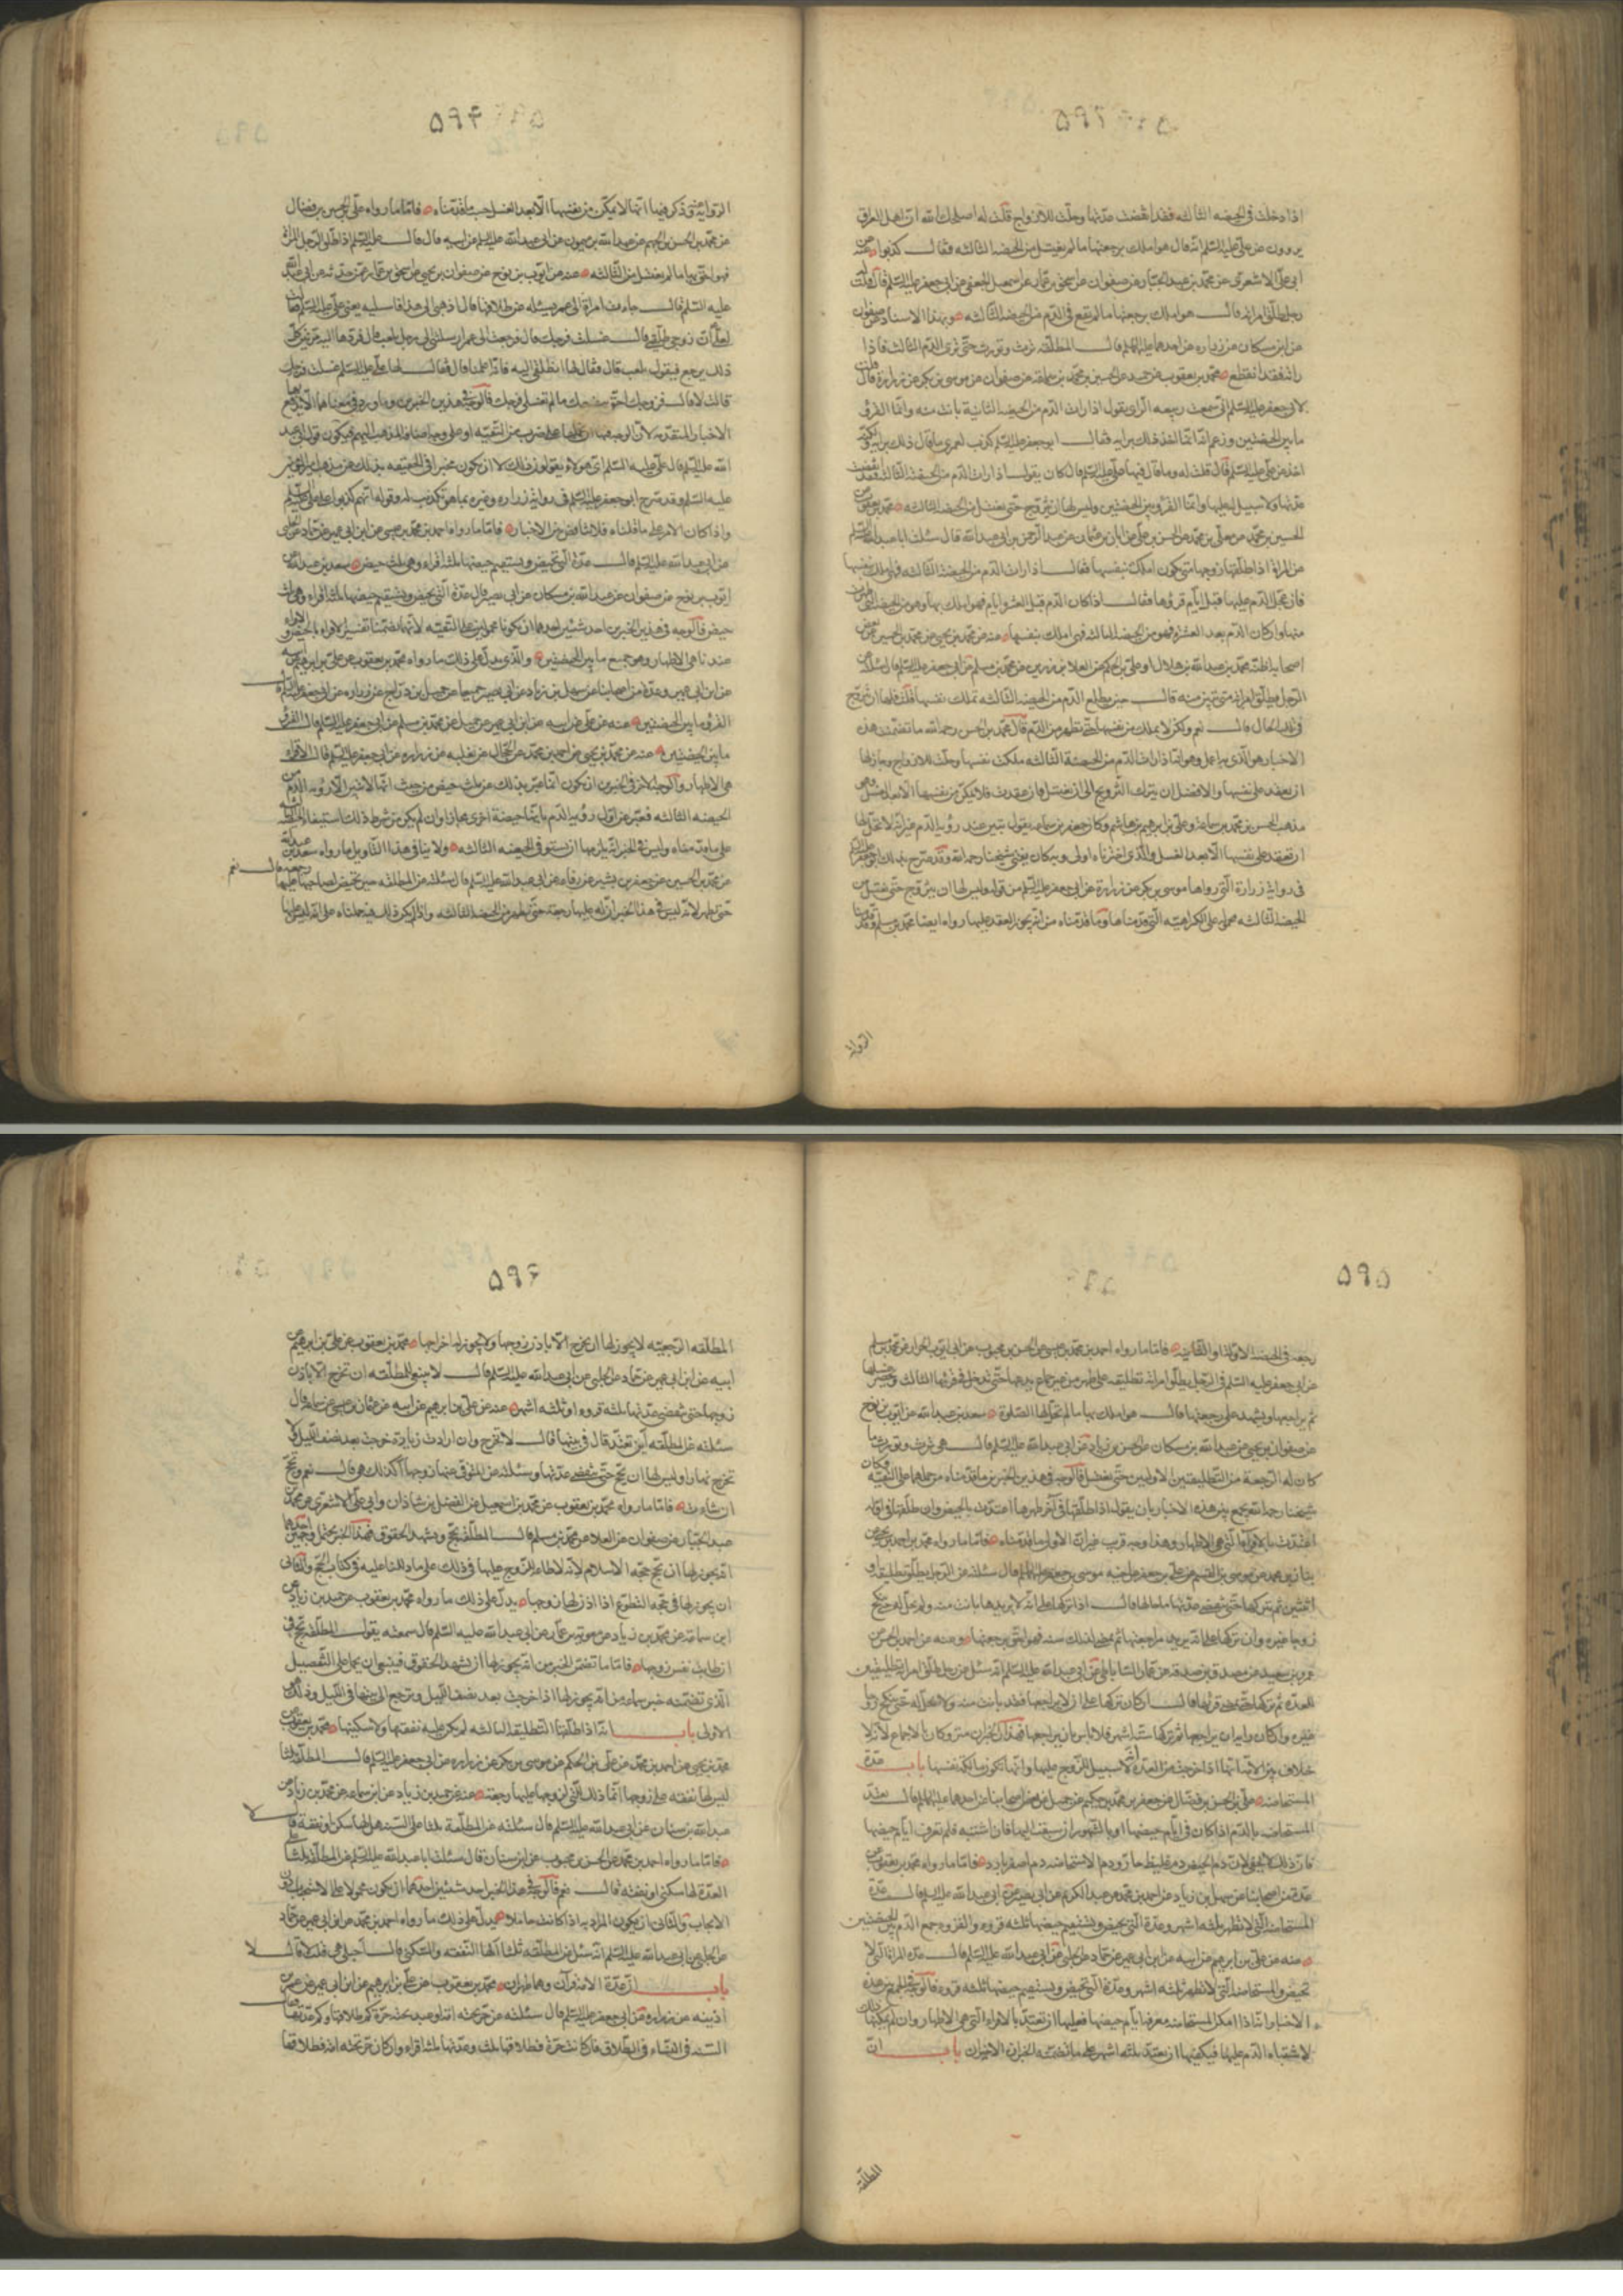 ۵۹۳
اذا دخلت فى الحيضه الثالثه فقد انقضت عدّتها وحلّت للازواج قلت له اصلحك الله ان اهل العراق
يروون عن علىّ عليه السّلم انّه قال هو املك برجعتها ما لم تغتسل من الحيضه الثالثه فقال كذبوا عنه
ابى علىّ الاشعرى عن محمّد بن عبد الجبّار عن صفوان عن اسحق بن عمّار عن اسمعيل الجعفى عن ابى جعفر عليه السّلم قال قلت له
رجل طلّق امراته قال هو املك برجعتها ما لم تقع فى الدّم من الحيضه الثالثه وبهذا الاسناد عن صفوان
عن ابن مسكان عن زراره عن احدهما عليهما السّلم قال المطلّقه ترث وتورث حتّى ترى الدّم الثالث فاذا
راته فقد انقطع محمّد بن يعقوب عن حميد عن الحسين بن محمّد بن سماعه عن صفوان عن موسى بن بكر عن زرارة قال قلت
لابى جعفر عليه السّلم انّى سمعت ربيعه الرّاى يقول اذا رات الدّم من الحيضه الثانية بانت منه وانّما القرؤ
ما بين الحيضتين وزعم انّه انّما اخذ ذلك برايه فقال ابو جعفر عليه السّلم كذب لعمرى ما قال ذلك برايه ولكنّه
اخذه عن علىّ عليه السّلم قال قلت له وما قال فيها علىّ عليه السّلم قال كان يقول اذا رات الدّم من الحيضة الثالثه فقد انقضت
عدّتها ولا سبيل له عليها وانّما القرؤ بين الحيضتين وليس لها ان تزوّج حتّى تغتسل من الحيضه الثالثه محمّد بن يعقوب عن
الحسين بن محمّد عن معلّى بن محمّد عن الحسن بن على عن ابان بن عثمان عن عبد الرّحمن بن ابى عبد الله قال سئلت ابا عبد الله عليه السّلم
عن المراة اذا طلّقها زوجها متى تكون املك بنفسها فقال اذا رات الدّم من الحيضة الثالثه فهى املك بنفسها
فان عجّل الدّم عليها قبل ايّام قرؤها فقال اذا كان الدّم قبل العشرة ايام فهو املك بها وهو من الحيضه الّتى طهرت
منها وان كان الدّم بعد العشرة فهو من الحيضه الثالثه فهى املك بنفسها عنه عن محمّد بن يحيى عن محمّد بن الحسين عن بعض
اصحابنا اظنّه محمّد بن عبد الله بن هلال او علىّ بن الحكم عن العلا بن رزين عن محمّد بن مسلم عن ابى جعفر عليه السّلم قال سئلته عن
الرّجل يطلّق امراته متى تبين منه قال حين يطلع الدّم من الحيضه الثالثه تملك نفسها قلت فلها ان تتزوّج
فى تلك الحال قال نعم ولكن لا تمكّن من نفسها حتّى تطهر من الدّم قال محمّد بن الحسن رحمه الله ما تضمّنت هذه
الاخبار هو الّذى عمل وهو انّها اذا رات الدّم من الحيضة الثالثه ملكت نفسها وحلّت للازواج وجاز لها
ان تعقد على نفسها والافضل ان يترك التّزويج الى ان تغتسل فان عقدت فلا تمكّن من نفسها الّا بعد الغسل وهو
مذهب الحسن بن محمّد بن سماعه وعلىّ بن ابرهيم بن هاشم وكان جعفر بن سماعه يقول تبين عند رؤية الدّم غير انّه لا يحلّ لها
ان تعقد على نفسها الّا بعد الغسل والّذى اخترناه اولى وبه كان يفتى شيخنا رحمه الله وقد صرّح بذلك ابو جعفر عليه السّلم
فى رواية زرارة الّتى رواها موسى بن بكر عن زرارة عن ابى جعفر عليه السّلم من قوله وليس لها ان تتزوّج حتّى تغتسل من
الحيضه الثالثه محمول على الكراهيّه الّتى قدّمناها وما قدّمناه من انّه يجوز العقد عليها رواه ايضا محمّد بن مسلم وقدّمنا
الرّواية
۵۹۴
الرّواية وذكر فيها انّها لا تمكّن من نفسها الّا بعد الغسل حسب ما قدّمناه فامّا ما رواه علىّ بن الحسن بن فضّال
عن محمّد بن الحسن بن الجهم عن عبد الله بن ميمون عن ابى عبد الله عليه السّلم عن ابيه قال قال علىّ عليه السّلم اذا طلّق الرّجل المراة
فهو احقّ بها ما لم تغتسل من الثّالثه عنه عن ايّوب بن نوح عن صفوان بن يحيى عن اسحق بن عمّار عمّن حدّثه عن ابى عبد الله
عليه السّلم قال جاءت امراة الى عمر تسئله عن طلاقها فقال اذهبى الى هذا فاسئليه يعنى علىّ عليه السّلم فقالت
لعلى ان زوجى طلّقنى قال غسلت فرجك قال فرجعت الى عمر ارسلتنى الى رجل يلعب قال فردّها اليه مرّتين كلّ
ذلك ترجع فتقول يلعب قال فقال لها انطلقى اليه فانّه اعلمنا قال فقال لها علىّ عليه السّلم غسلت فرجك
قالت لا قال فزوجك احقّ ببضعك ما لم تغسلى فرجك فالوجه فى هذين الخبرين وما ورد فى معناهما الّا يدفع بها
الاخبار المتقدّمه لانّ الوجه فيها ان نحملها على ضرب من التقيّه او على وجه اضافه المذهب اليهم فيكون قول ابى عبد
الله عليه السّلم قال علىّ عليه السّلم اى هؤلاء يقولون ذلك لا ان يكون مخبرا فى الحقيقه بذلك عن مذهب امير المؤمنين
عليه السّلم وقد صرّح ابو جعفر عليه السّلم فى رواية زراره وغيره بما هو تكذيب له وقوله انّهم كذبوا على علىّ عليه السّلم
واذا كان الامر على ما قلناه فلا تناقض بين الاخبار فامّا ما رواه احمد بن محمّد بن عيسى عن ابن ابى عمير عن حمّاد عن الحلبى
عن ابى عبد الله عليه السّلم قال عدّة الّتى تحيض ويستقيم حيضها ثلثة اقراء وهى ثلث حيض سعد بن عبد الله عن
ايّوب بن نوح عن صفوان عن عبد الله بن مسكان عن ابى بصير قال عدّة الّتى تحيض ويستقيم حيضها ثلثة اقراء وهى ثلث
حيض فالوجه فى هذين الخبرين احد شيئين احدهما ان يكونا محمولين على التقيّه لانّهما تضمّنا تفسير الاقراء بالحيض والاقراء
عندنا هى الاطهار وهو جمع ما بين الحيضتين والّذى يدلّ على ذلك ما رواه محمّد بن يعقوب عن علىّ بن ابرهيم عن ابيه
عن ابن ابى عمير وعدّة من اصحابنا عن سهل بن زياد عن ابن ابى نصر جميعا عن جميل بن درّاج عن زراره عن ابى جعفر عليه السّلم قال
القرؤ ما بين الحيضتين عنه عن علىّ عن ابيه عن ابن ابى عمير عن جميل عن محمّد بن مسلم عن ابى جعفر عليه السّلم قال القرؤ
ما بين الحيضتين عنه عن محمّد بن يحيى عن احمد بن محمّد عن الحجّال عن ثعلبه عن زراره عن ابى جعفر عليه السّلم قال الاقراء
هى الاطهار والوجه الاخر فى الخبرين ان يكون انّما عبّر بذلك عن ثلث حيض من حيث انّها لا تبين الّا برؤية الدّم من
الحيضه الثالثه فعبّر عن اوّل رؤية الدّم بانّها حيضة اخرى مجازا وان لم يكن من شرط ذلك استيفاء الحيضه الثالثه
على ما قدّمناه وليس فى الخبر انّه يلزمها ان تستوفى الحيضه الثالثه ولا ينافى هذا التّاويل ما رواه سعد بن عبد الله
عن محمّد بن الحسين عن جعفر بن بشير عن رفاعه عن ابى عبد الله عليه السّلم قال سئلته عن المطلّقه حين تحيض لصاحبها عليها رجعه قال نعم
حتّى تطهر لانّه ليس فى هذا الخبر انّ له عليها رجعة حتّى تطهر من الحيضه الثالثه واذا لم يكن ذلك فيه حملناه على انّه ليس له عليها
۵۹۵
رجعه فى الحيضه الاوّله والثّانيه فامّا ما رواه احمد بن محمّد بن عيسى عن الحسن بن محبوب عن ابى ايّوب الخزاز عن محمّد بن مسلم
عن ابى جعفر عليه السّلم فى الرّجل يطلّق امراته تطليقه على طهر من غير جماع يدعها حتّى تدخل فى قرئها الثالث ويحضر غسلها
ثم يراجعها ويشهد على رجعتها قال هو املك بها ما لم تحلّ لها الصّلوة سعد بن عبد الله عن ايّوب بن نوح
عن صفوان بن يحيى عن عبد الله بن مسكان عن الحسن بن زياد عن ابى عبد الله عليه السّلم قال هى ترث وتورث ما
كان له الرّجعة من التّطليقتين الاوليين حتّى تغتسل فالوجه فى هذين الخبرين ما قدّمناه من حملهما على التّقيّه وكان
شيخنا رحمه الله يجمع بين هذه الاخبار بان يقول اذا طلّقها فى اخر طهرها اعتدّت بالحيض وان طلّقها فى اوّله
اعتدّت بالاقراء الّتى هى الاطهار وهذا وجه قريب غير انّ الاولى ما قدّمناه فامّا ما رواه محمّد بن احمد بن يحيى عن
بنان بن محمد عن موسى بن القسم عن علىّ بن جعفر عن اخيه موسى بن جعفر عليهما السّلم قال سئلته عن الرّجل يطلّق تطليقه او
اثنتين ثم يتركها حتّى تنقضى عدّتها ما حالها قال اذا تركها على انّه لا يريدها بانت منه ولم تحلّ له حتّى تنكح
زوجا غيره وان تركها على انّه يريد مراجعتها ثم مضى لذلك سنه فهو احقّ برجعتها وعنه عن احمد بن الحسن عن
عمرو بن سعيد عن مصدّق بن صدقه عن عمّار السّاباطى عن ابى عبد الله عليه السّلم انّه سئل عن رجل طلّق امراته تطليقتين
للعدّه ثم تركها حتّى مضى قرؤها قال ان كان تركها على ان لا يراجعها فقد بانت منه ولا تحلّ له حتّى تنكح زوجا
غيره وان كان رايه ان يراجعها ثم تركها ستّة اشهر فلا باس ان يراجعها فهذان الخبران متروكان بالاجماع لانّه لا
خلاف بين الامّة انّها اذا خرجت من العدّة لا سبيل للزّوج عليها وانّها تكون مالكة نفسها باب عدّة
المستحاضه علىّ بن الحسن بن فضّال عن جعفر بن محمّد بن حكيم عن جميل عن بعض اصحابنا عن احدهما عليهما السّلم قال تعتدّ
المستحاضه بالدّم اذا كان فى ايّام حيضها او بالشّهور ان سبقت اليها فان اشتبه فلم تعرف ايّام حيضها
فانّ ذلك لا يخفى لانّ دم الحيض دم عبيط حارّ ودم الاستحاضه دم اصفر بارد فامّا ما رواه محمّد بن يعقوب عن
عدّة من اصحابنا عن سهل بن زياد عن احمد بن محمّد عن عبد الكريم عن ابى بصير عن ابى عبد الله عليه السّلم قال عدّة
المستحاضه الّتى لا تطهر ثلثه اشهر وعدّة الّتى تحيض ويستقيم حيضها ثلثه قروء والقروء جمع الدّم بين الحيضتين
عنه عن علىّ بن ابرهيم عن ابيه عن ابن ابى عمير عن حمّاد عن الحلبى عن ابى عبد الله عليه السّلم قال عدّة المراة الّتى لا
تحيض والمستحاضه الّتى لا تطهر ثلثه اشهر وعدّة الّتى تحيض ويستقيم حيضها ثلثه قروء فالوجه فى الجمع بين هذه
الاخبار انّه اذا امكن المستحاضه معرفة ايّام حيضها فعليها ان تعتدّ بالاقراء الّتى هى الاطهار وان لم يمكنها ذلك
لاشتباه الدّم عليها فيكفيها ان تعتدّ بثلثه اشهر على ما تضمّنه الخبران الاخيران باب انّ
المطلّقه
۵۹۶
المطلّقه الرّجعيّه لا يجوز لها ان تخرج الّا باذن زوجها ولا يجوز له اخراجها محمّد بن يعقوب عن علىّ بن ابرهيم عن
ابيه عن ابن ابى عمير عن حمّاد عن الحلبى عن ابى عبد الله عليه السّلم قال لا ينبغى للمطلّقه ان تخرج الّا باذن
زوجها حتى تنقضى عدّتها ثلثه قروء او ثلثه اشهر عنه عن علىّ بن ابرهيم عن ابيه عن عثمان بن عيسى عن سماعه قال
سئلته عن المطلّقه اين تعتدّ قال فى بيتها قال لا تخرج وان ارادت زيارة خرجت بعد نصف اللّيل ولا
تخرج نهارا وليس لها ان تحجّ حتّى تنقضى عدّتها وسئلته عن المتوفى عنها زوجها اكذلك هى قال نعم وتحجّ
ان شاءت فامّا ما رواه محمّد بن يعقوب عن محمّد بن اسمعيل عن الفضل بن شاذان وابى علىّ الاشعرى عن محمّد بن
عبد الجبّار عن صفوان عن العلاء عن محمّد بن مسلم قال المطلّقه تحجّ وتشهد الحقوق فهذا الخبر يحتمل وجهين احدهما
انّه يجوز لها ان تحجّ حجّة الاسلام لانّه لا طاعه للزّوج عليها فى ذلك على ما دللنا عليه فى كتاب الحجّ والثّانى
ان يجوز لها فى حجّة التطوّع اذا اذن لها زوجها يدلّ على ذلك ما رواه محمّد بن يعقوب عن حميد بن زياد عن
ابن سماعة عن محمّد بن زياد عن معويه بن عمّار عن ابى عبد الله عليه السّلم قال سمعته يقول المطلّقه تحجّ فى
ان طابت نفس زوجها فامّا ما تضمّن الخبر من انّه يجوز لها ان تشهد الحقوق فينبغى ان يحمل على التّفصيل
الّذى تضمّنه خبر سماعه من انّه يجوز لها اذا خرجت بعد نصف اللّيل وترجع الى بيتها فى اللّيل وذلك هو
الاولى باب انّه اذا طلّقها التّطليقه الثالثه لم يكن عليه نفقتها ولا سكنيها محمّد بن يعقوب عن
محمّد بن يحيى عن احمد بن محمّد عن علىّ بن الحكم عن موسى بن بكر عن زراره عن ابى جعفر عليه السّلم قال المطلّقه ثلثا
ليس لها نفقه على زوجها انّما ذلك للّتى لزوجها عليها رجعة عنه عن حميد بن زياد عن ابن سماعه عن محمّد بن زياد عن
عبد الله بن سنان عن ابى عبد الله عليه السّلم قال سئلته عن المطلّقه ثلثا على السّنه هل لها سكنى او نفقة قال لا
فامّا ما رواه احمد بن محمّد عن الحسن بن محبوب عن ابن سنان قال سئلت ابا عبد الله عليه السّلم عن المطلّقه ثلثا على
العدّة لها سكنى او نفقه قال نعم فالوجه فى هذا الخبر احد شيئين احدهما ان يكون محمولا على الاستحباب دون
الايجاب والثّانى ان يكون المراد به اذا كانت حاملا يدلّ على ذلك ما رواه احمد بن محمّد عن ابن ابى عمير عن حمّاد
عن الحلبى عن ابى عبد الله عليه السّلم انّه سئل عن المطلّقه ثلثا الها النّفقه والسّكنى قال احبلى هى قلت لا قال لا
باب انّ عدّة الامة قرآن وهما طهران محمّد بن يعقوب عن علىّ بن ابرهيم عن ابن ابى عمير عن عمر بن
اذينه عن زراره عن ابى جعفر عليه السّلم قال سئلته عن حرّ تحته امة او عبد تحته حرّة كم طلاقها وكم عدّتها قال
السّنه فى النّساء فى الطّلاق فان كانت حرّة فطلاقها ثلث وعدّتها ثلثه اقراء وان كان حرّ تحته امة فطلاقها